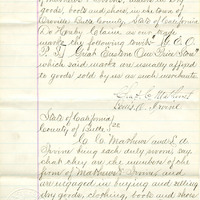 goods, boots and shoes, in the town of
Oroville, Butte County, State of California,
Do hereby Claim as our Trade
marks the following words "W. C. O.
P. S." Great Eastern One Price Store"
which said marks are usually affixed
to goods sold by us as such merchants.
State of California }
County of Butte } SS
C. C. Mathews and L. D.
Irvine being each duly sworn say
that they are the members of the
firm of Mathews & Irvine and
are engaged in buying and selling
dry goods, clothing, boots and shoes